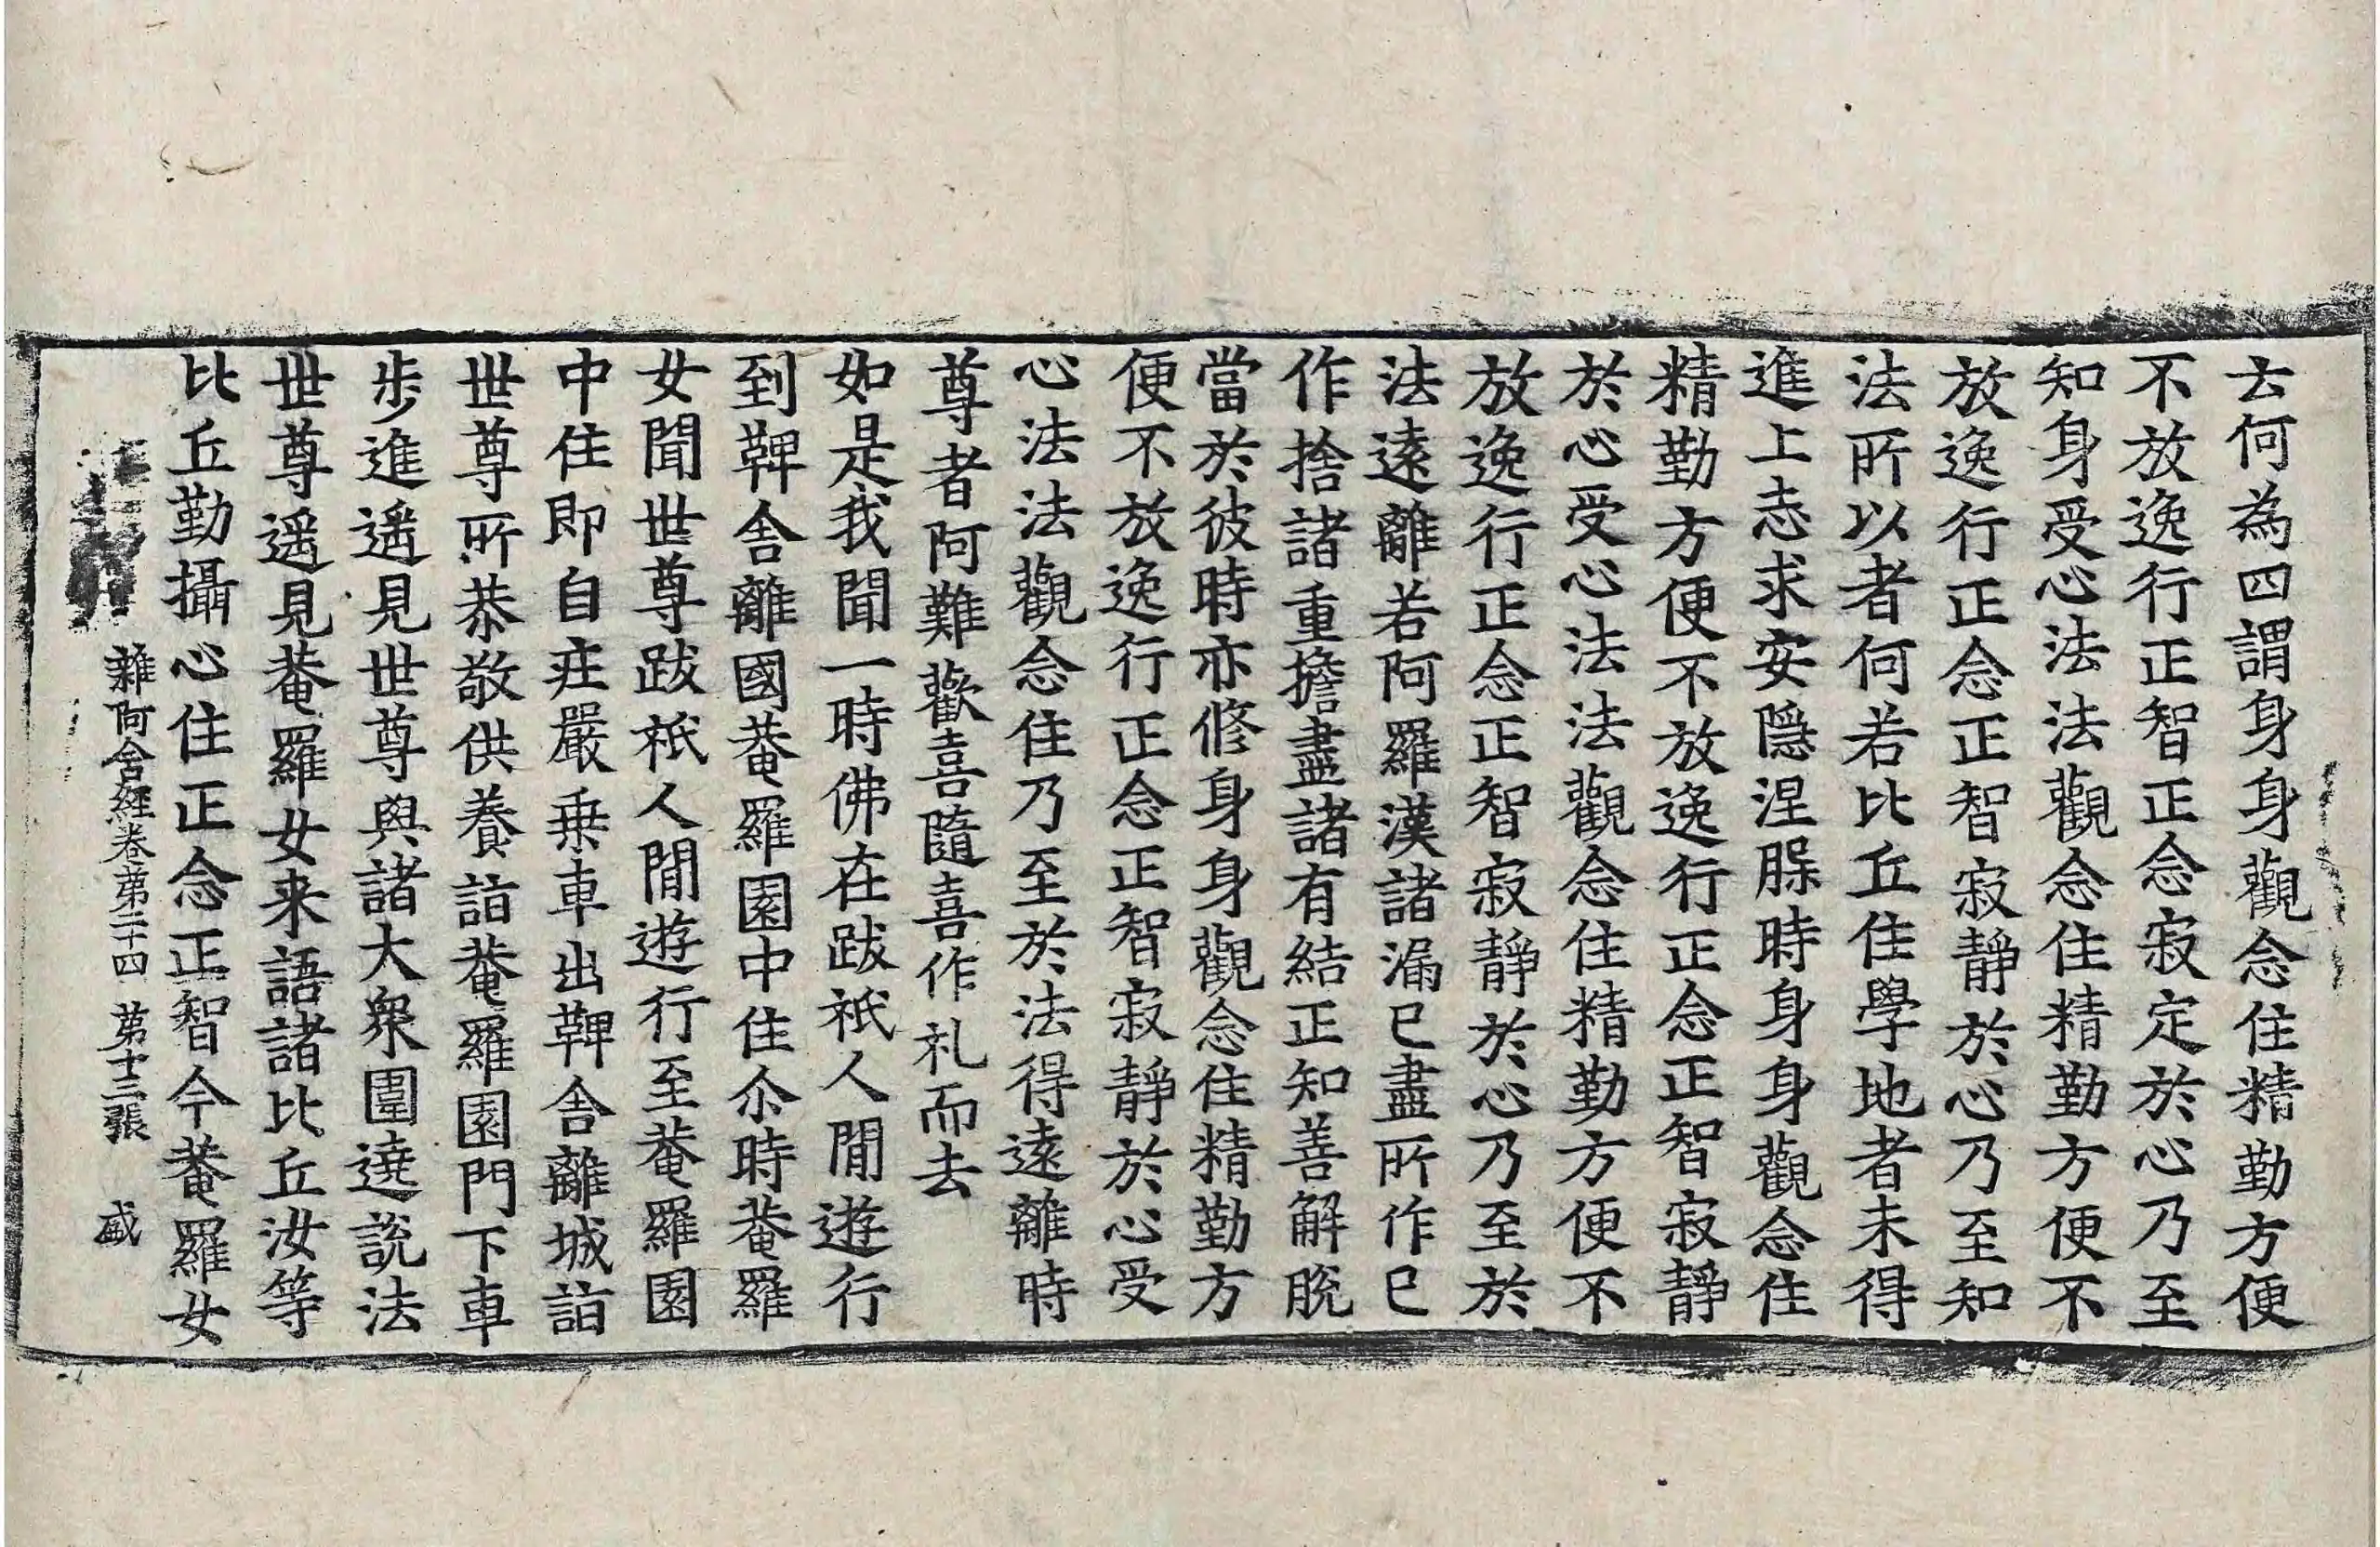 云何為四謂身身觀念住精勤方便
不放逸行正智正念寂定於心乃至
知身受心法法觀念住精勤方便不
放逸行正念正智寂靜於心乃至知
法所以者何若比丘住學地者未得
進上志求安隱涅槃時身身觀念住
精勤方便不放逸行正念正智寂靜
於心受心法法觀念住精勤方便不
放逸行正念正智寂靜於心乃至於
法遠離若阿羅漢諸漏已盡所作已
作捨諸重擔盡諸有結正知善解脫
當於彼時亦修身身觀念住精勤方
便不放逸行正念正智寂靜於心受
心法法觀念住乃至於法得遠離時
尊者阿難歡喜隨喜作礼而去
如是我聞一時佛在跋祇人閒遊行
到鞞舍離國菴羅園中住尒時菴羅
女聞世尊跋祇人閒遊行至菴羅園
中住即自庄嚴乗車出鞞舍離城詣
世尊所恭敬供養詣菴羅園門下車
步進遥見世尊與諸大衆圍遶說法
世尊遥見菴羅女来語諸比丘汝等
比丘勤攝心住正念正智今菴羅女
雜阿含經卷苐二十四 苐十三張 盛